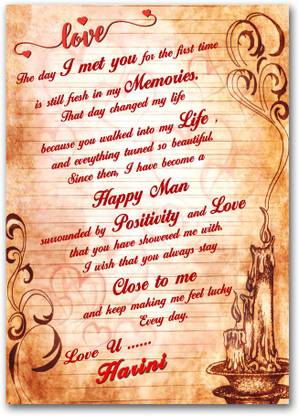 love
The day I met you for the first time
is still fresh in my Memories.
That day changed my life
because you walked into my Life ,
and everything turned so beautiful.
Since then, I have become a
Happy Man
surrounded by Positivity and Love
that you have showered me with.
I wish that you always stay
Close to me
and keep making me feel lucky
Every day.
Love U ......
Harini